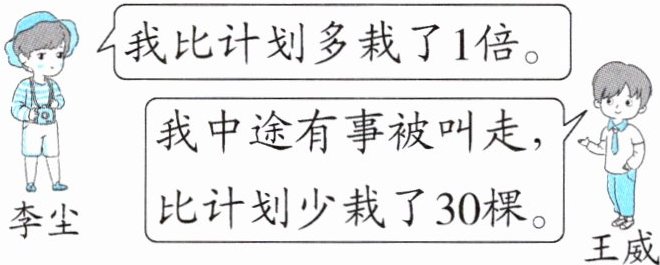 我比计划多栽了1倍。
我中途有事被叫走，
比计划少栽了30棵。
李尘
王威